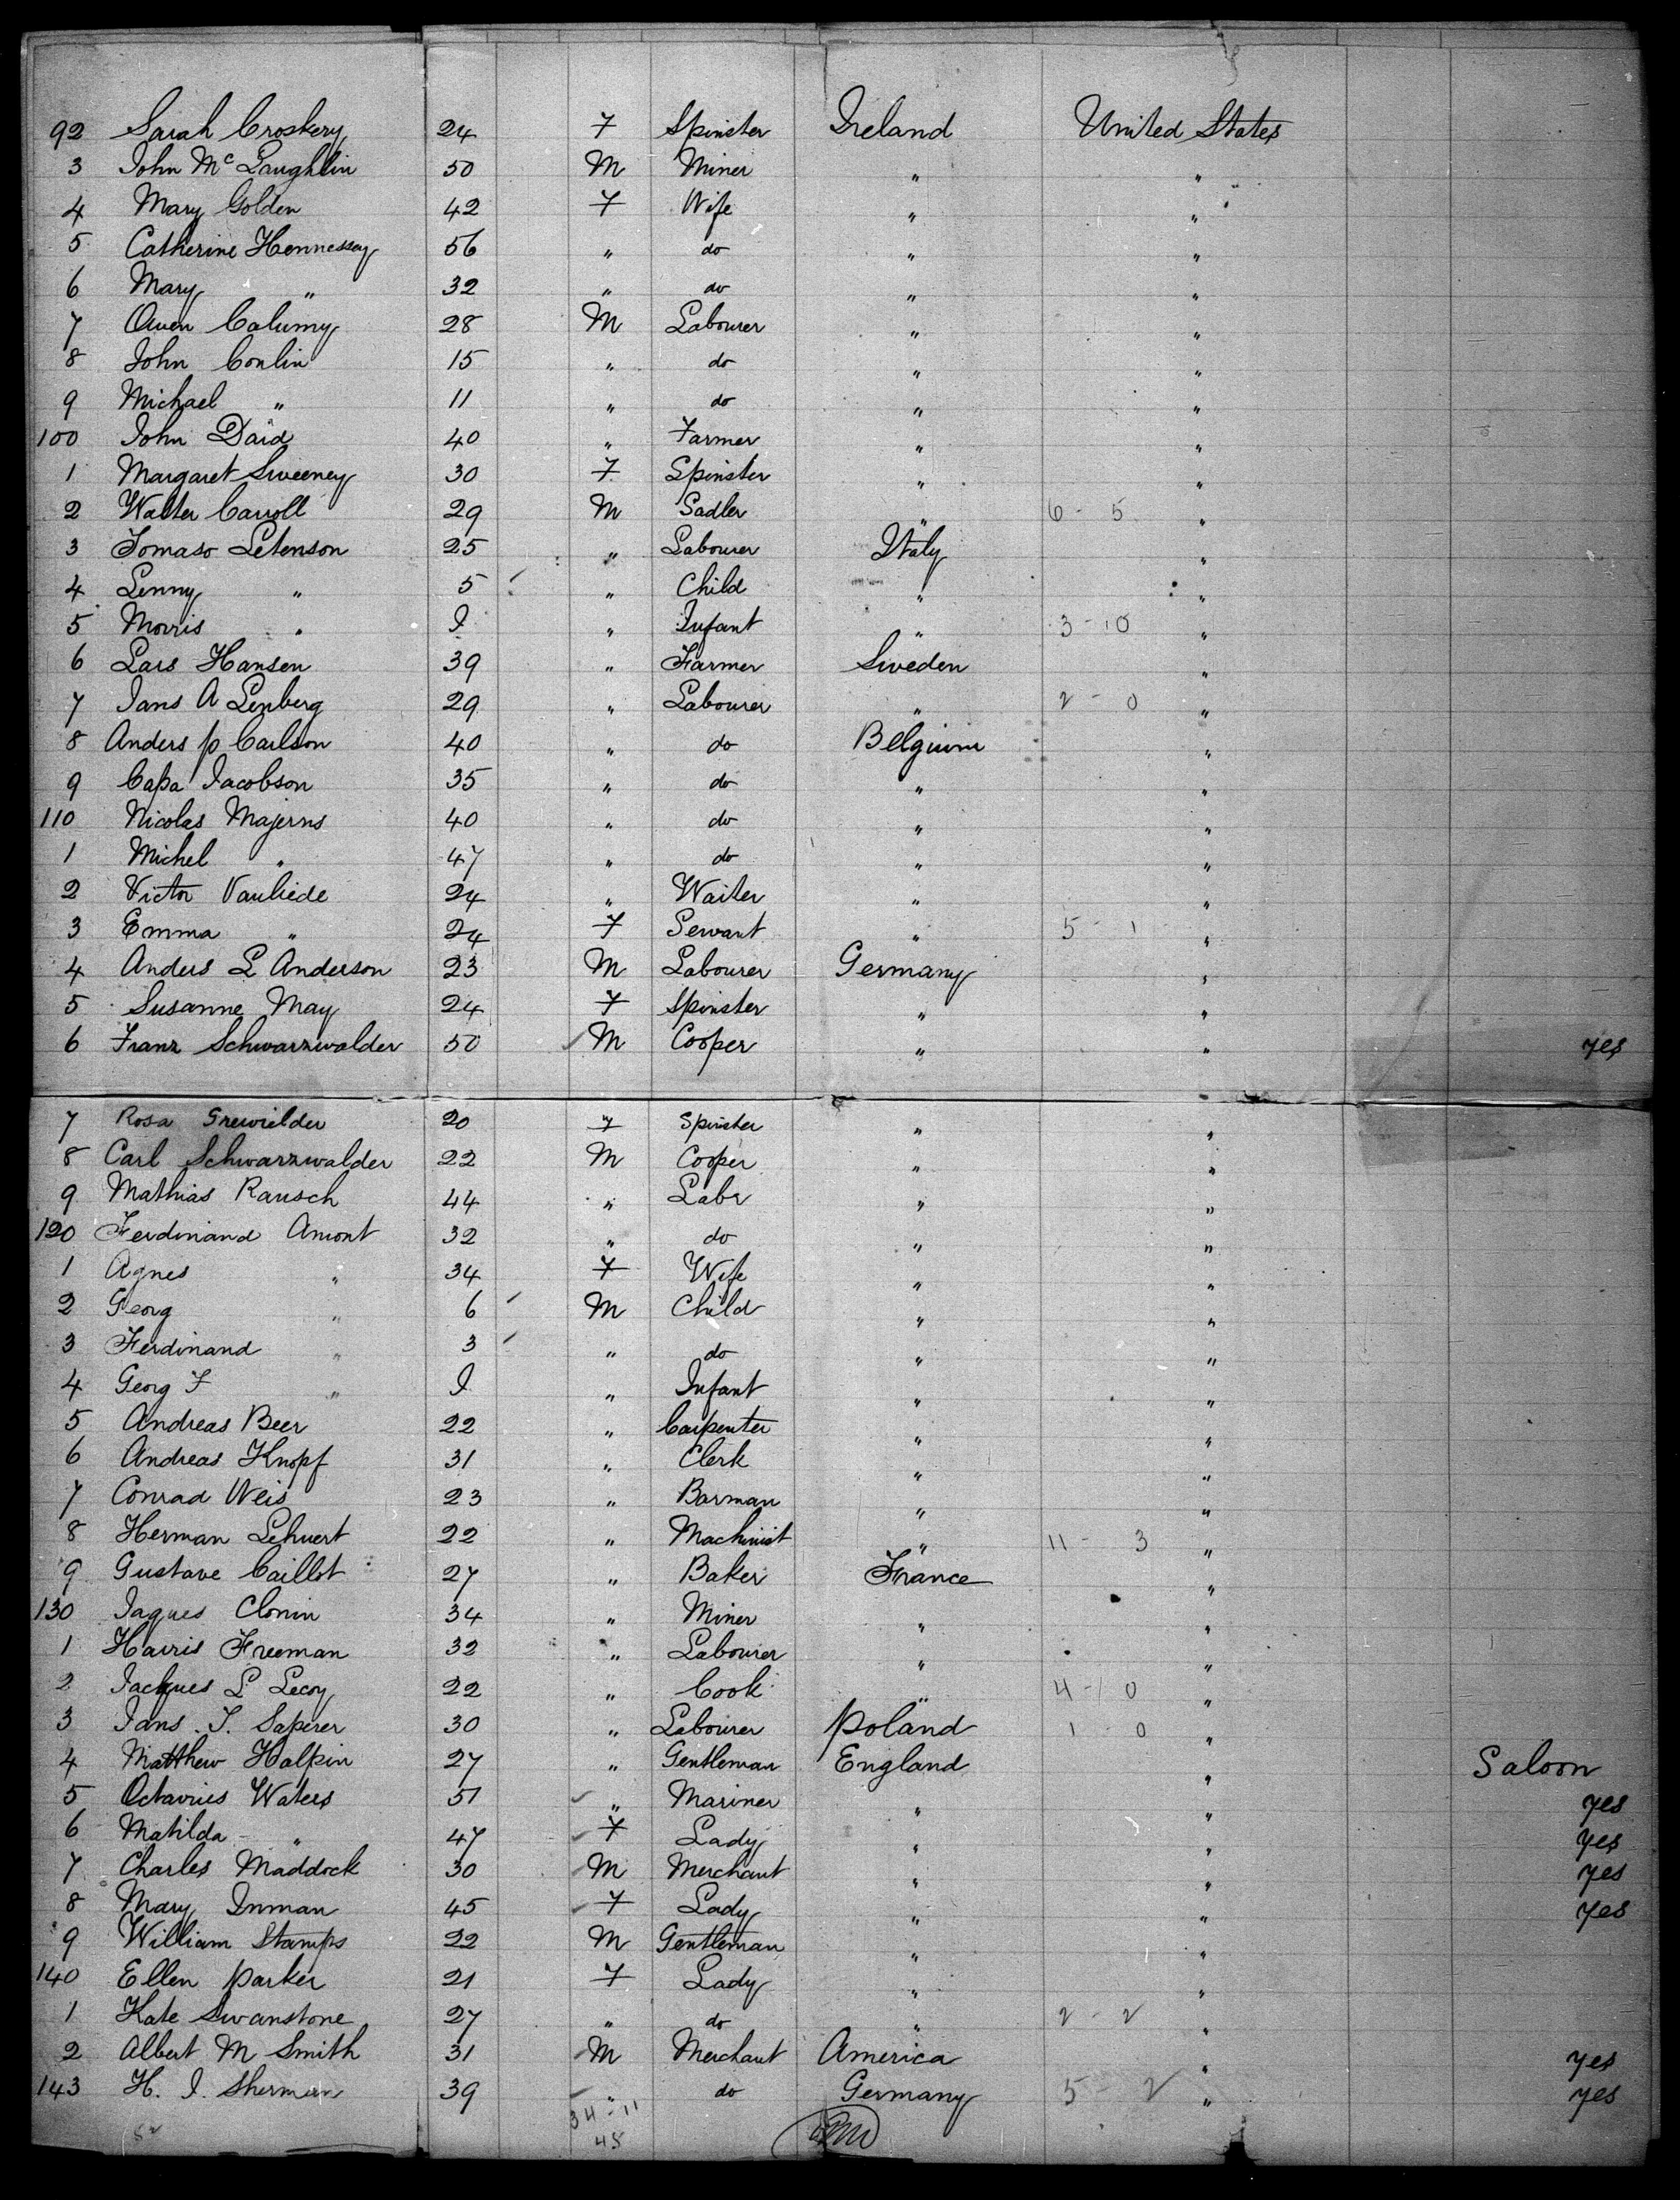 92 Sarah Croskery 24 F Spinster Ireland United States
3 John McLaughlin 50 M Miner " "
4 Mary Golden 42 F Wife " "
5 Catherine Hennessey 56 " do " "
6 Mary " 32 " do " "
7 Owen Calumy 28 M Labourer " "
8 John Conlin 15 " do " "
9 Michael " 11 " do " "
100 John Daid 40 " Farmer " "
1 Margaret Sweeney 30 F Spinster " "
2 Walter Carroll 29 M Sadler " 6 - 5 "
3 Tomaso Letenson 25 " Labourer Italy "
4 Lenny " 5 " Child " "
5 Morris " I " Infant " 3 - 10 "
6 Lars Hansen 39 " Farmer Sweden "
7 Jans A Lenberg 29 " Labourer " 2 - 0 "
8 Anders p Carlson 40 " do Belgium "
9 Capa Jacobson 35 " do " "
110 Nicolas Majerns 40 " do " "
1 Michel " 47 " do " "
2 Victor Vauliede 24 " Waiter " "
3 Emma " 24 F Servant " 5 - 1 "
4 Anders L Anderson 23 M Labourer Germany "
5 Susanne May 24 F Spinster " "
6 Franz Schwarzwalder 50 M Cooper " " yes
7 Rosa Grewielder 20 F Spinster " "
8 Carl Schwarzwalder 22 M Cooper " "
9 Mathias Rausch 44 " Labr " "
120 Ferdinand Amont 32 " do " "
1 Agnes " 34 F Wife " "
2 Georg " 6 M Child " "
3 Ferdinand " 3 " do " "
4 Georg F " I " Infant " "
5 Andreas Beer 22 " Carpenter " "
6 Andreas Knopf 31 " Clerk " "
7 Conrad Weis 23 " Barman " "
8 Herman Lehuert 22 " Machinist " 11 - 3 "
9 Gustave Caillot 27 " Baker France "
130 Jaques Clonin 34 " Miner " "
1 Harris Freeman 32 " Labourer " "
2 Jackques L Lecoy 22 " Cook " 4 - 0 "
3 Jans. T. Saperer 30 " Labourer poland 1 - 0 "
4 Matthew Halpin 27 " Gentleman England " Saloon
5 Octavius Waters 51 " Mariner " " yes
6 Matilda " 47 F Lady " " yes
7 Charles Maddock 30 M Merchant " " yes
8 Mary Inman 45 F Lady " " yes
9 William Stamps 22 M Gentleman " "
140 Ellen parker 21 F Lady " "
1 Kate Swanstone 27 " do " 2 - 2 "
2 Albert M Smith 31 M Merchant America " yes
143 H. I. Sherman 39 " do Germany 5 - 2 " yes
34 - 11
45